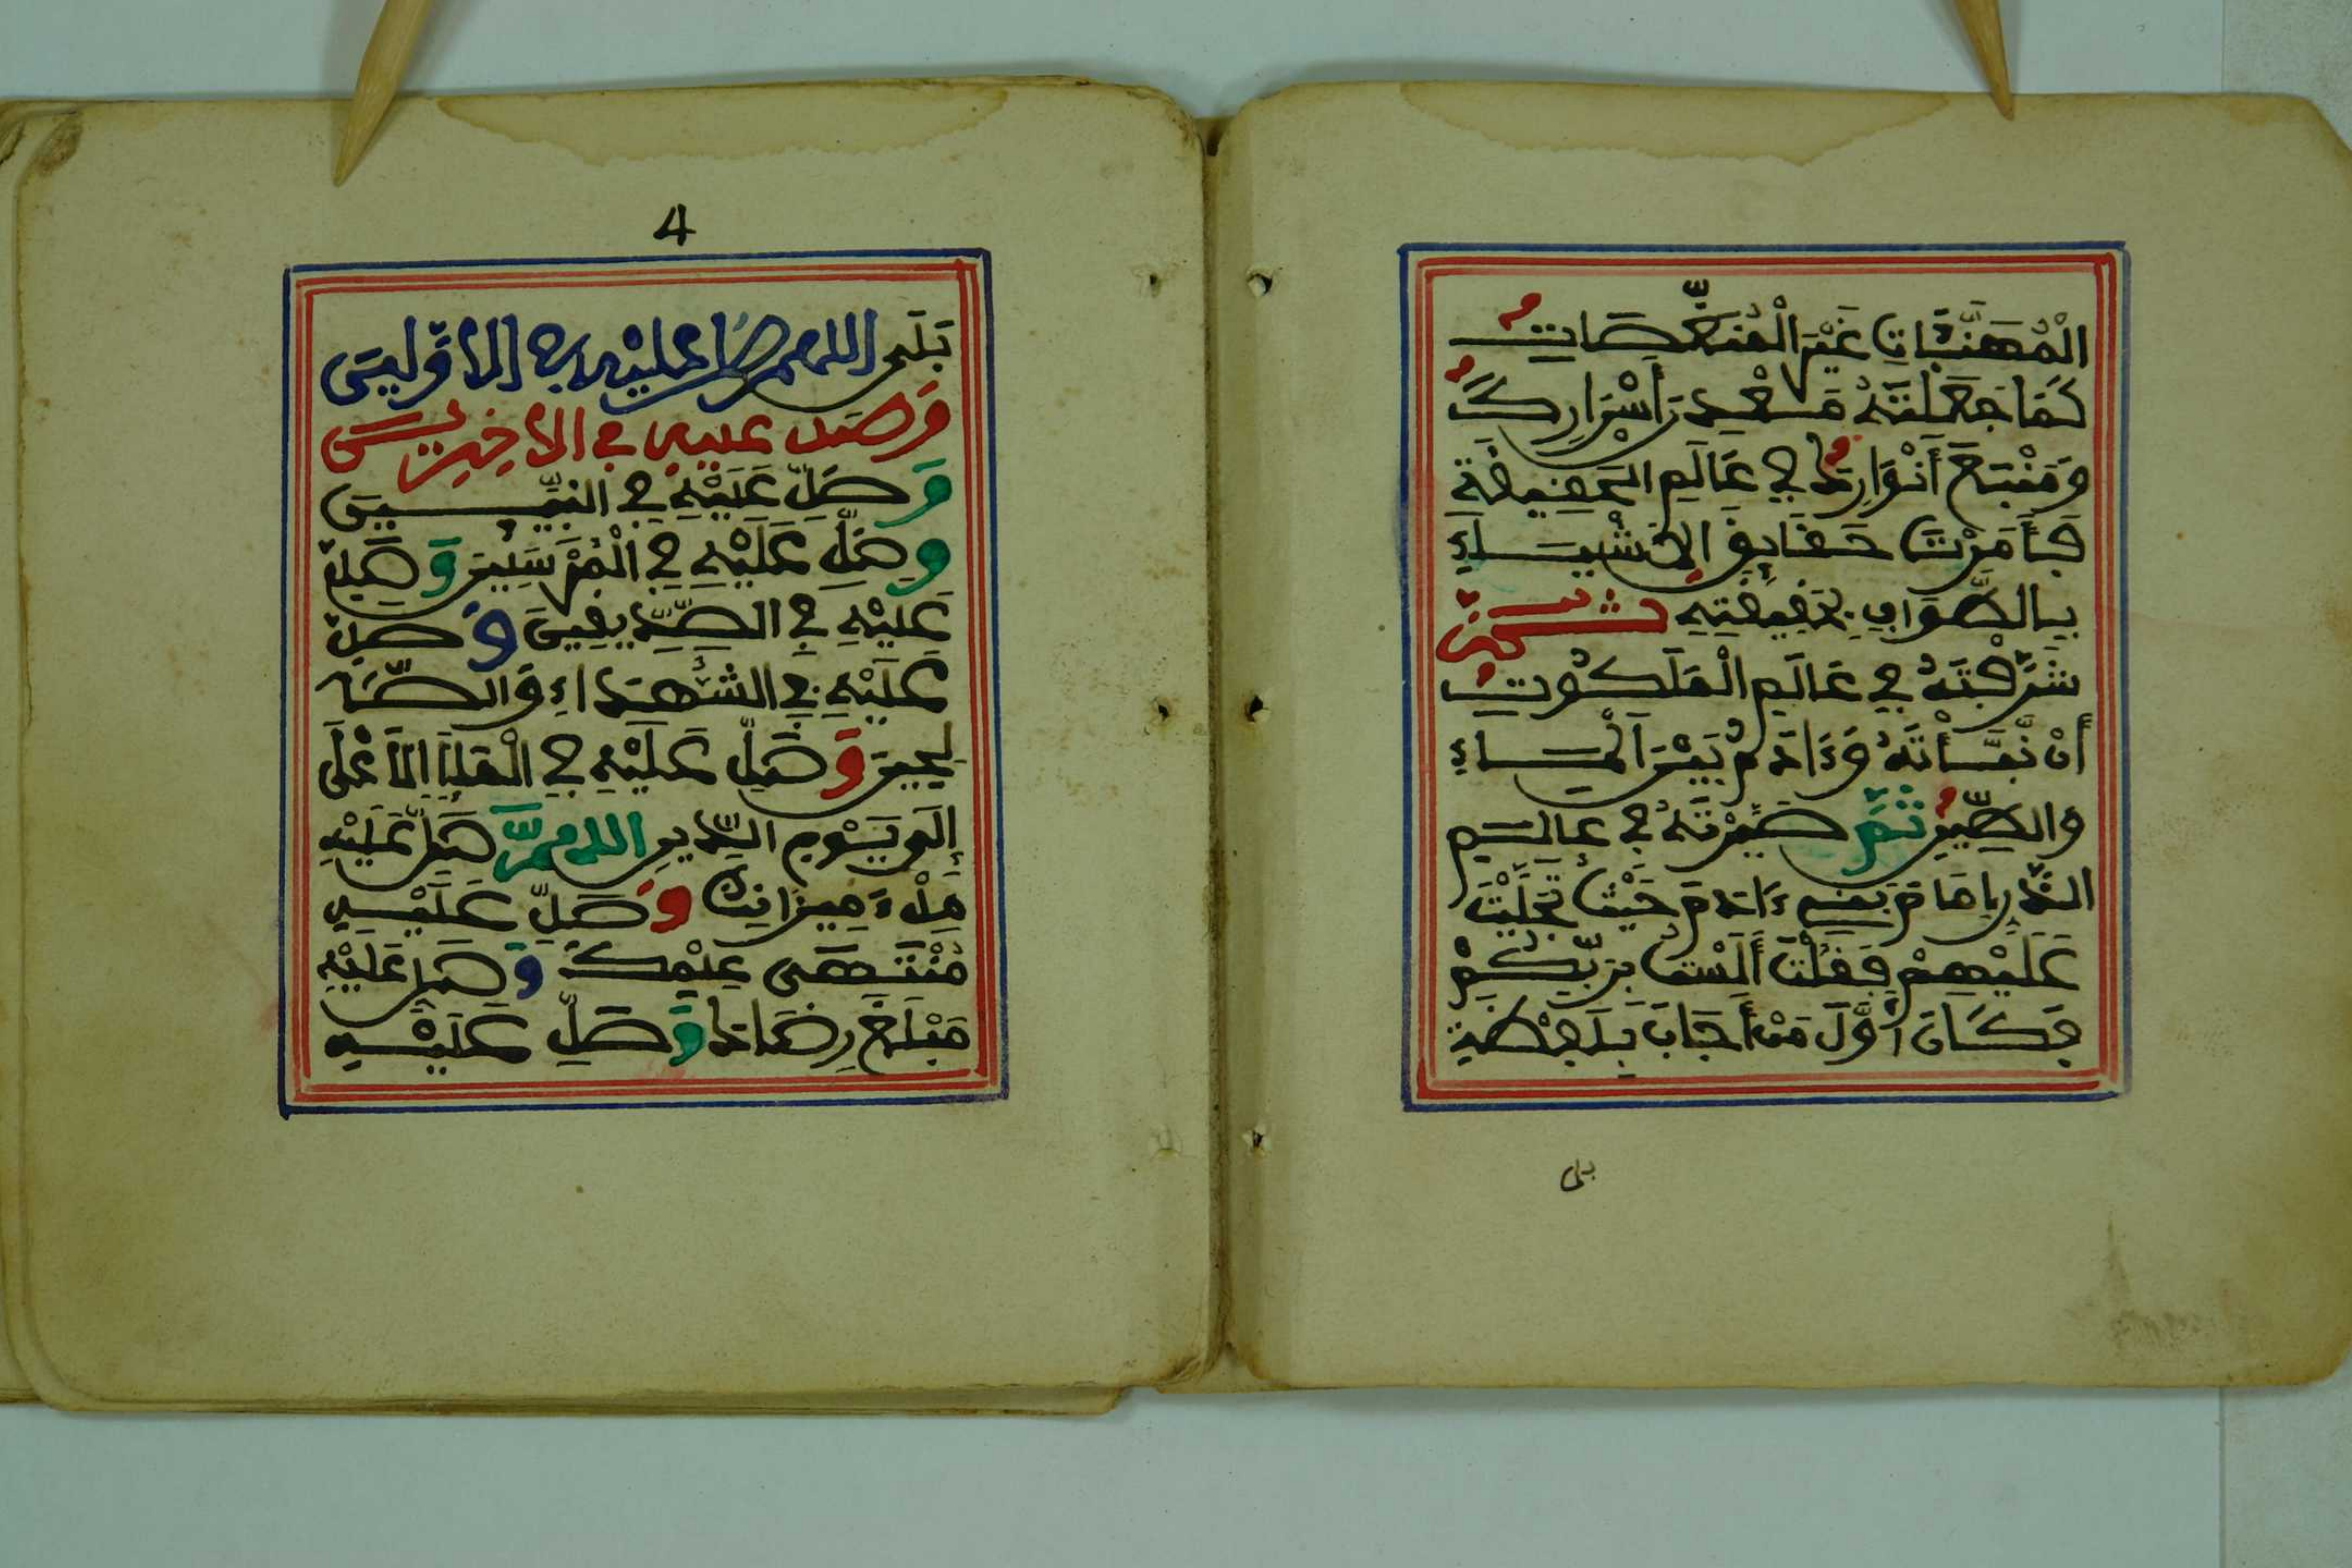 الْمُهَنَّئَاتِ غَيْرَ الْمُنَغِّصَاتِ
كَمَا جَعَلْتَهُ مَعْدِنَ أَسْرَارِكَ
وَمَنْبَعَ أَنْوَارِكَ فِي عَالَمِ الْحَقِيقَةِ
الْأَشْيَاءِ
بِالطَّوَافِ بِحَقِيقَتِهِ
شَرَّفْتَهُ فِي عَالَمِ الْمَلَكُوتِ
أَنْ نَبَّأْتَهُ وَءَادَمُ بَيْنَ الْمَاءِ
وَالطِّينِ ثُمَّ صَيَّرْتَهُ فِي عَالَمِ
الذَّرِّ إِمَامَ بَنِي ءَادَمَ حَيْثُ تَجَلَّيْتَ
عَلَيْهِمْ فَقُلْتَ أَلَسْتُ بِرَبِّكُمْ
فَكَانَ أَوَّلَ مَنْ أَجَابَ بِلَفْظَةِ
بلى
4
بَلَى اللهم صل عليه في الاولين
وصل عليه في الاخرين
وَصَلِّ عَلَيْهِ فِي النَّبِيِّينَ
وَصَلِّ عَلَيْهِ فِي الْمُرْسَلِينَ وَصَلِّ
عَلَيْهِ فِي الصِّدِّيقِينَ وَصَلِّ
عَلَيْهِ فِي الشُّهَدَاءِ وَالصَّا
لِحِينَ وَصَلِّ عَلَيْهِ فِي الْمَلَإِ الْأَعْلَى
إِلَى يَوْمِ الدِّينِ اللهم صَلِّ عَلَيْهِ
مِلْءَ مِيزَانِكَ وَصَلِّ عَلَيْهِ
مُنْتَهَى عِلْمِكَ وَصَلِّ عَلَيْهِ
مَبْلَغَ رِضَاكَ وَصَلِّ عَلَيْهِ